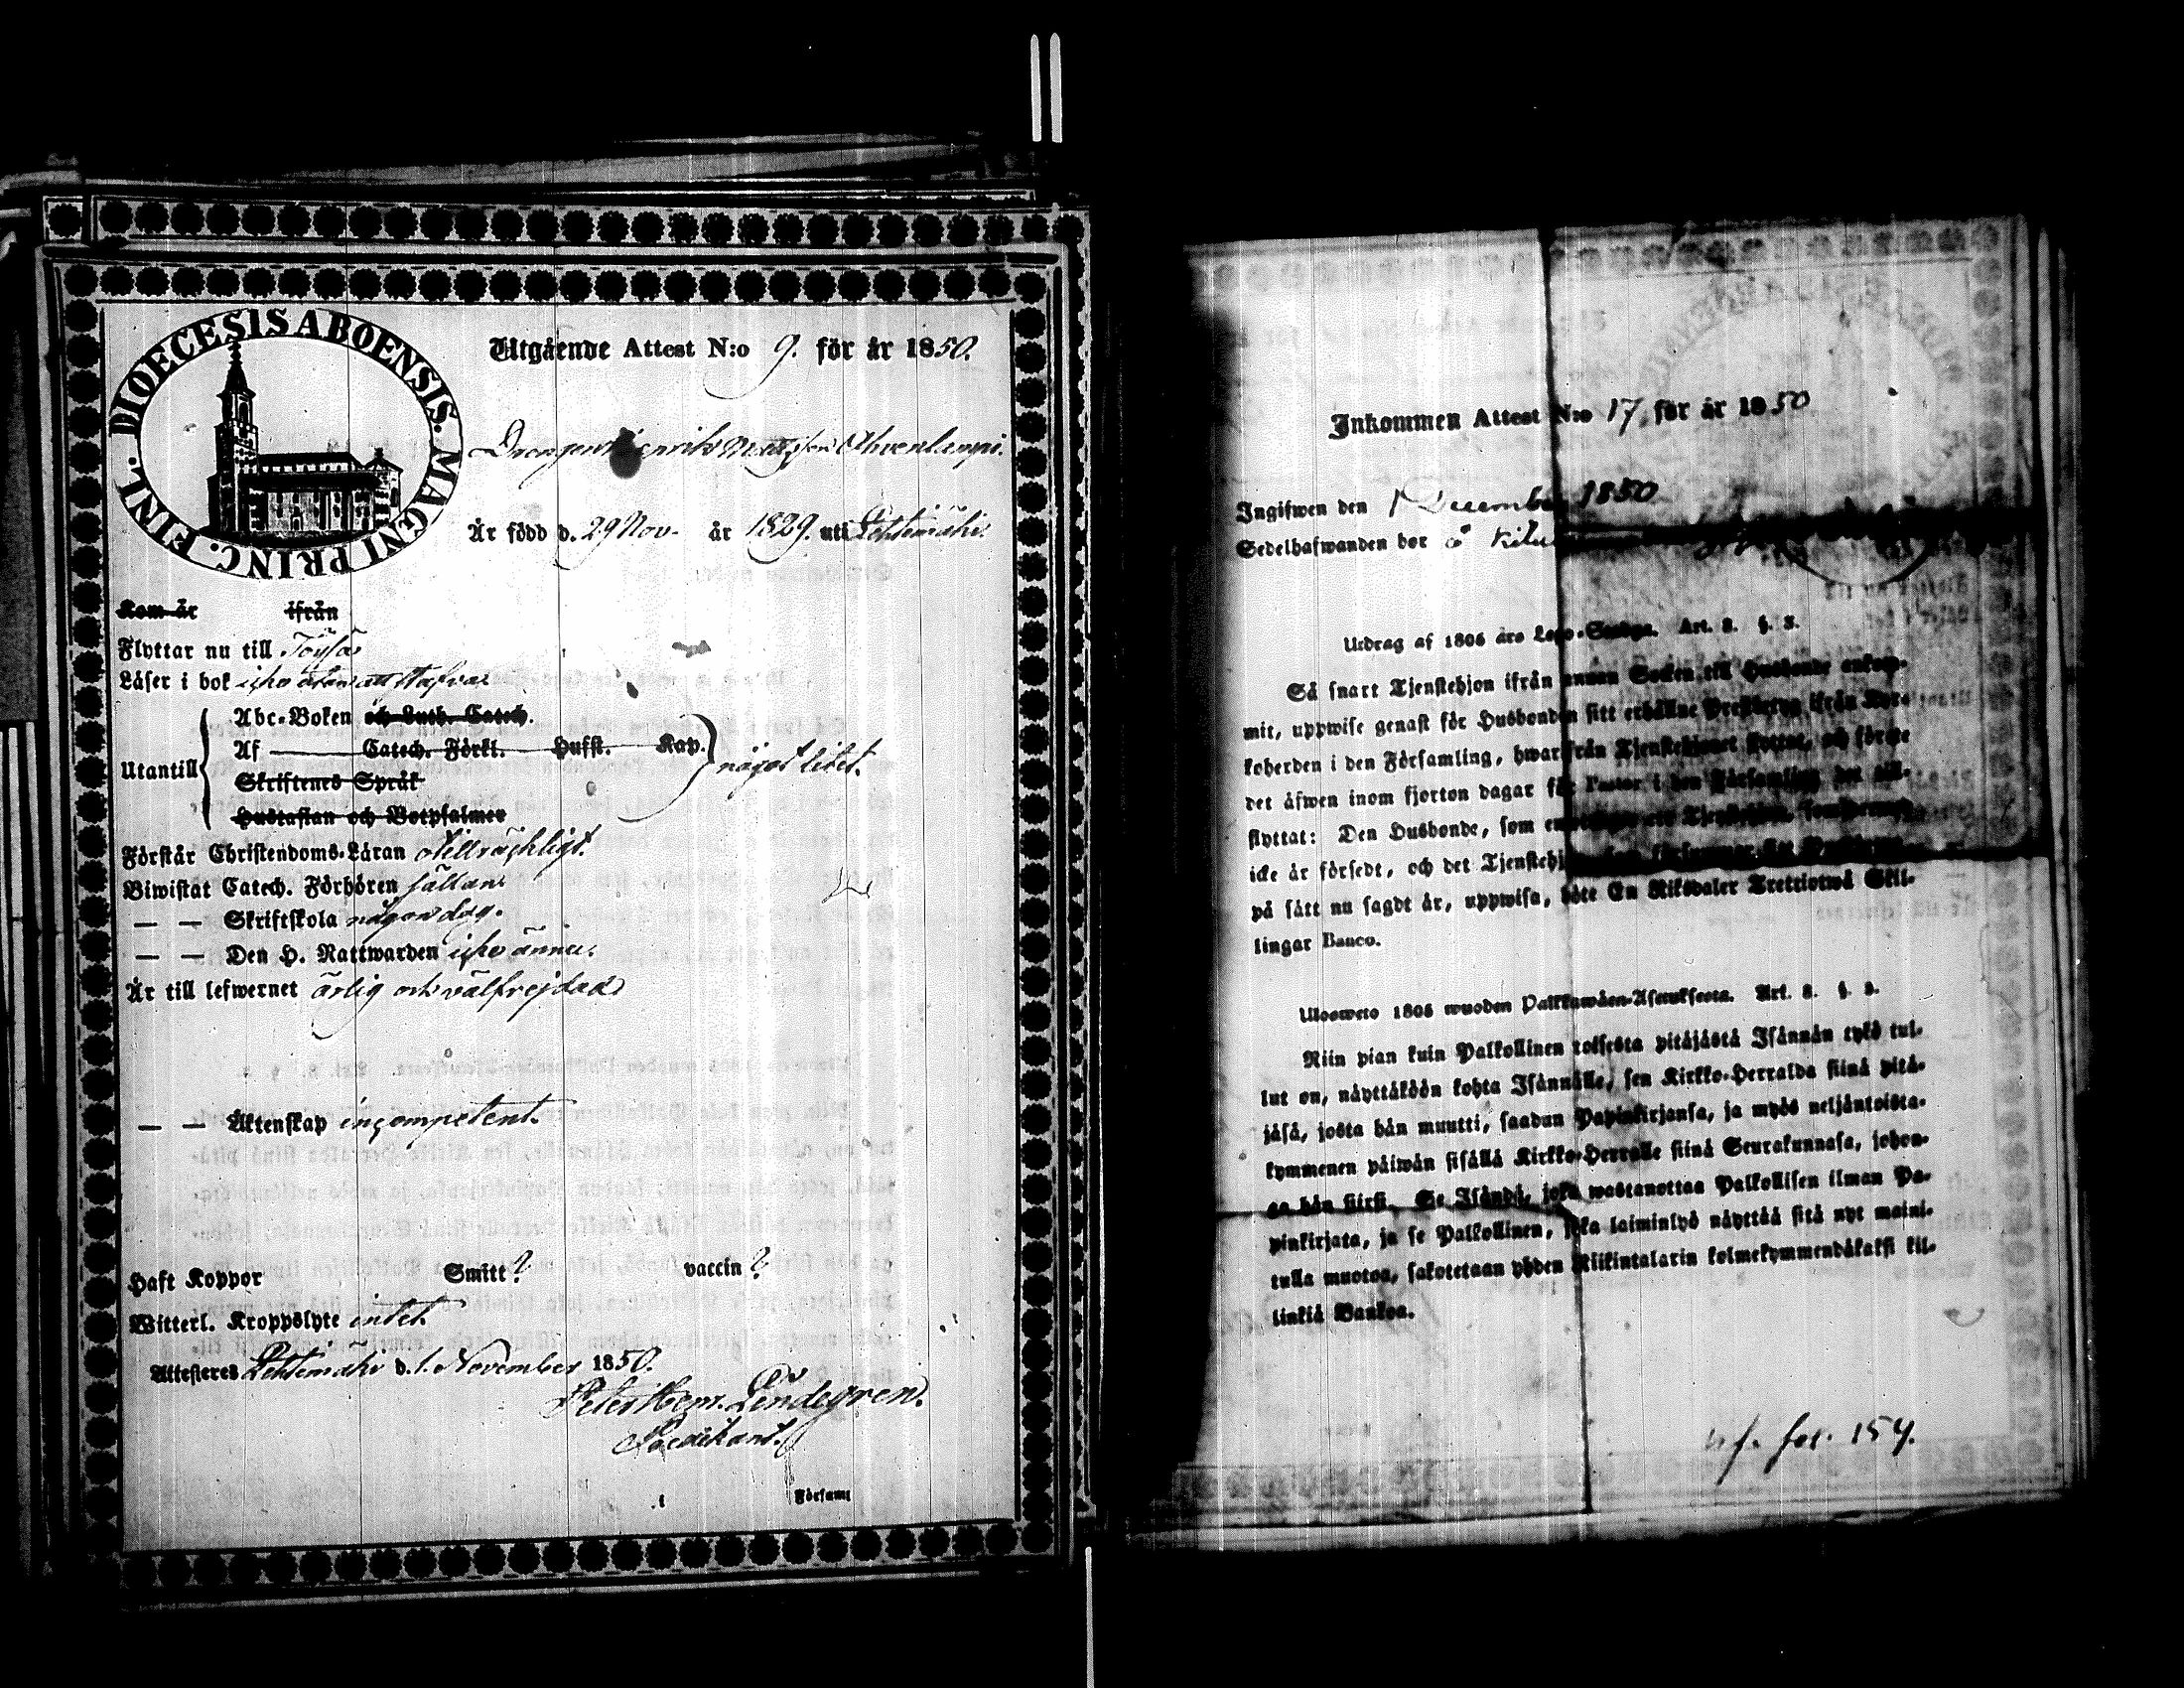 DIOECESIS ABOENSIS. MAGNI PRINC. FINL.
Utgående Attest N:o 9. för år 1850.
Drengen Henrik Mattsson Ahvenlampi.
Är född d. 29 Nov. år 1829. uti Lehtimäki.
Kom år ifrån
Flyttar nu till Töysä
Läser i bok icke utan att stafva
Utantill
Abc-Boken och Luth. Catech.
Af Catech. Förkl. Hufst. Kap.
Skriftenes Språk
Hustaflan och Botpsalmer
något litet.
Förstår Christendoms-Läran otillräckligt.
Biwistat Catech. Förhören sällan
— — Skriftskola någon dag.
— — Den H. Nattwarden icke ännu.
Är till lefwernet ärlig och välfrejdad
— — Äktenskap incompetent.
Haft Koppor Smitt? vaccin?
Witterl. Kroppslyte intet
Attesteres Lehtimäki d. 1. November 1850.
Peter Henr. Lindegren.
Predikant.
i Församl
Inkommen Attest N:o 17. för år 1850
Ingifwen den 1 December 1850
Sedelhafwanden bor å
Utdrag af 1805 års Lego-Stadga. Art. 8. §. 3.
Så snart Tjenstehjon ifrån annan Socken till Husbonde ankom-
mit, uppwise genast för Husbonden sitt erhållne Prestbetyg ifrån Kyr-
koherden i den Församling, hwarifrån Tjenstehjonet flyttat, och förete
det äfwen inom fjorton dagar för Pastor i den Församling det till-
flyttat: Den Husbonde, som emottager ett Tjenstehjon, som dermed
icke är försedt, och det Tjenstehjon, som försummar
på sätt nu sagdt är, uppwisa, böte En Riksdaler Tretriotwå Skil-
lingar Banco.
Ulosweto 1805 wuoden Palkkawäen-Asetuksesta. Art. 8. §. 3.
Niin pian kuin Palkollinen toisesta pitäjästä Isännän tykö tul-
lut on, näyttäköön kohta Isännälle, sen Kirkko-Herralda siinä pitä-
jäsä, josta hän muutti, saadun Papinkirjansa, ja myös neljäntoista-
kymmenen päiwän sisällä Kirkko-Herralle siinä Seurakunnasa, johon-
ga hän siirsi. Se Isändä, joka wastanottaa Palkollisen ilman Pa-
pinkirjata, ja se Palkollinen, joka laiminlyö näyttää sitä nyt maini-
tulla muotoa, sakotetaan yhden Riikintalarin kolmekymmendäkaksi kil-
linkiä Bankoa.
fol. 154.